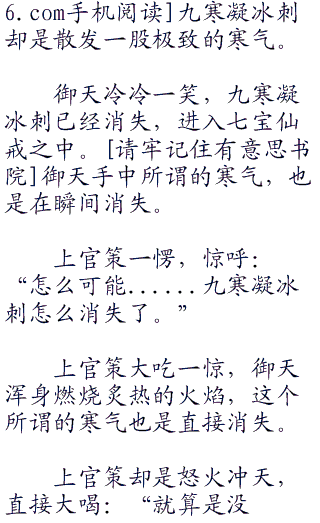 6.com手机阅读]九寒凝冰刺
却是散发一股极致的寒气。
御天冷冷一笑，九寒凝
冰刺已经消失，进入七宝仙
戒之中。[请牢记住有意思书
院]御天手中所谓的寒气，也
是在瞬间消失。
上官策一愣，惊呼：
“怎么可能......九寒凝冰
刺怎么消失了。”
上官策大吃一惊，御天
浑身燃烧炙热的火焰，这个
所谓的寒气也是直接消失。
上官策却是怒火冲天，
直接大喝：“就算是没